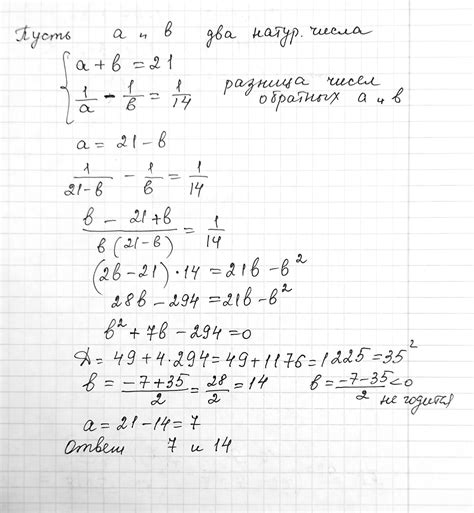 Пусть a и b два натур. числа
{ a + b = 21
1/a - 1/b = 1/14 разница чисел
обратных a и b
a = 21 - b
1/(21-b) - 1/b = 1/14
(b - 21 + b)/(b(21-b)) = 1/14
(2b - 21) · 14 = 21b - b²
28b - 294 = 21b - b²
b² + 7b - 294 = 0
Д = 49 + 4·294 = 49 + 1176 = 1225 = 35²
b = (-7+35)/2 = 28/2 = 14 b = (-7-35)/2 < 0
не годится
a = 21 - 14 = 7
Ответ 7 и 14